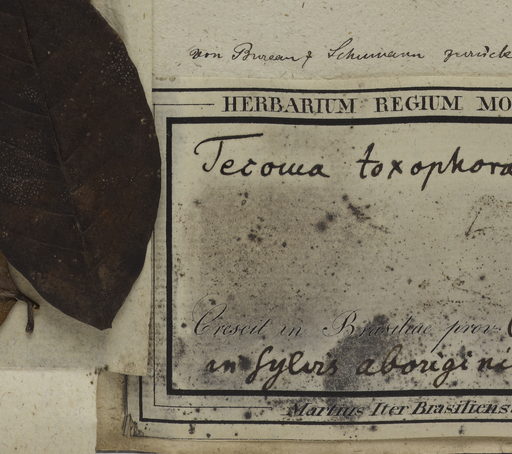 von Bureau & Schumann zurück
HERBARIUM REGIUM MO
Tecoma toxophora
Crescit in Brasiliae prov.
in Sylvis aborigini
Martius Iter Brasiliens